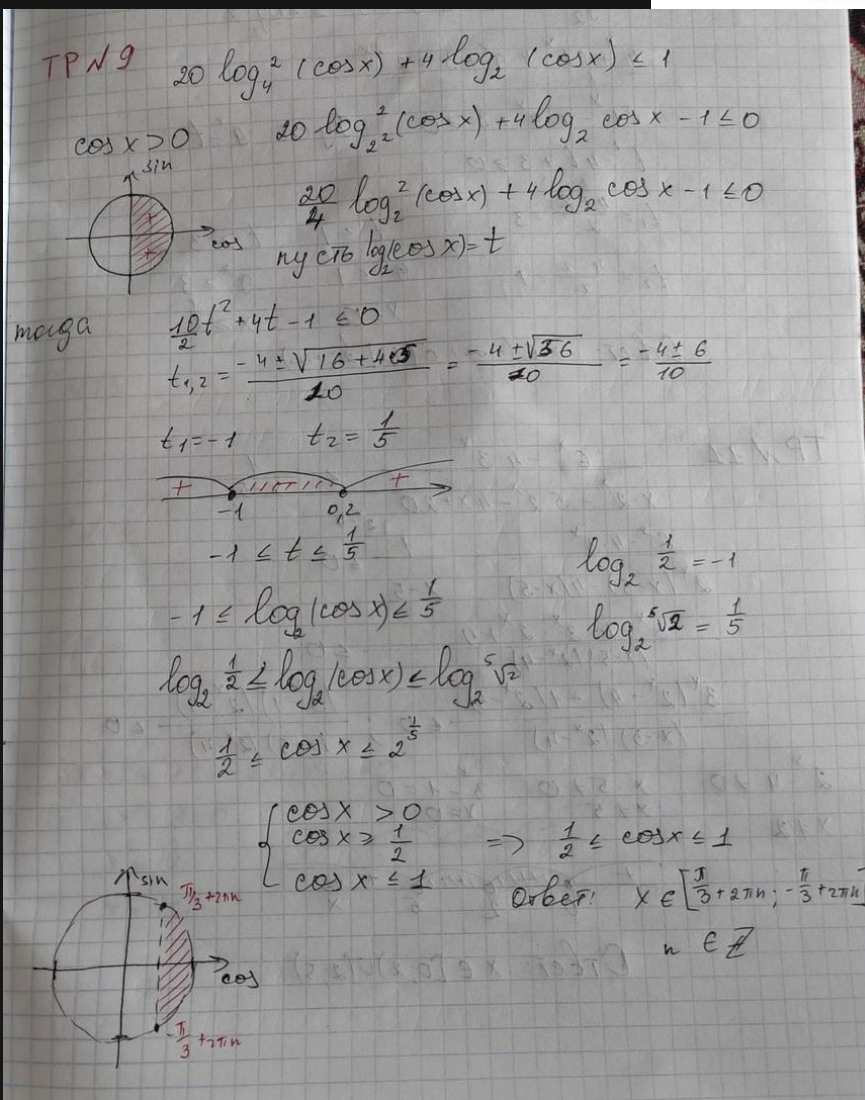 ТР№9 20 log₄² (cosx) + 4 log₂ (cosx) ≤ 1
cosx>0 20 log²₂² (cosx) + 4 log₂ cosx - 1 ≤ 0
sin
20/4 log₂² (cosx) + 4 log₂ cosx - 1 ≤ 0
cos
пусть log₂(cosx) = t
тогда 10/2 t² + 4t - 1 ≤ 0
t₁,₂ = (-4 ± √(16 + 4·5))/10 = (-4 ± √36)/10 = (-4 ± 6)/10
t₁ = -1 t₂ = 1/5
+ +
-1 0,2
-1 ≤ t ≤ 1/5 log₂ 1/2 = -1
-1 ≤ log₂(cosx) ≤ 1/5 log₂ ⁵√2 = 1/5
log₂ 1/2 ≤ log₂(cosx) ≤ log₂ ⁵√2
1/2 ≤ cosx ≤ 2^(1/5)
{ cosx > 0
cosx ≥ 1/2 => 1/2 ≤ cosx ≤ 1
cosx ≤ 1
Ответ: x ∈ [π/3 + 2πn ; -π/3 + 2πn]
n ∈ Z
sin
π/3 + 2πn
cos
-π/3 + 2πn